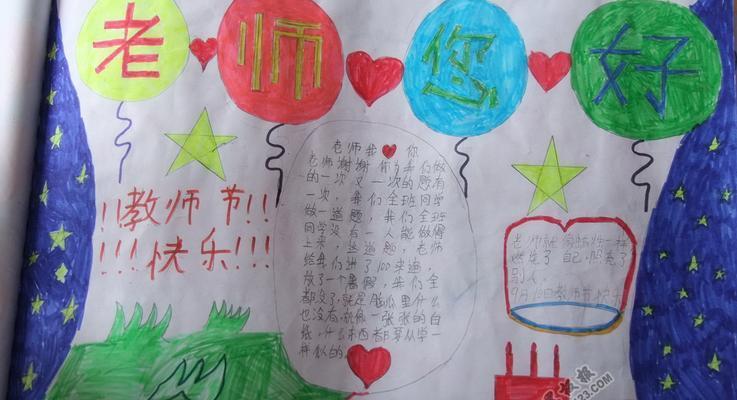 老师您好
!!教师节!!
!!!快乐!!!
老师我 你
老师谢谢 你为我们做
的一次 又一次的题有
一次,我们全班同学
做一道题,我们全班
同学没有一人能做得
上来,这道题,老师
给我们讲了100来遍,
放了一个暑假,我们全
都没了,就是脑瓜里什么
也没有,就像一张张的白
纸,什么东西都要从学一
样似的。
老师就像蜡烛一样
燃烧了自己,照亮了
别人,
9月10日教师节快乐